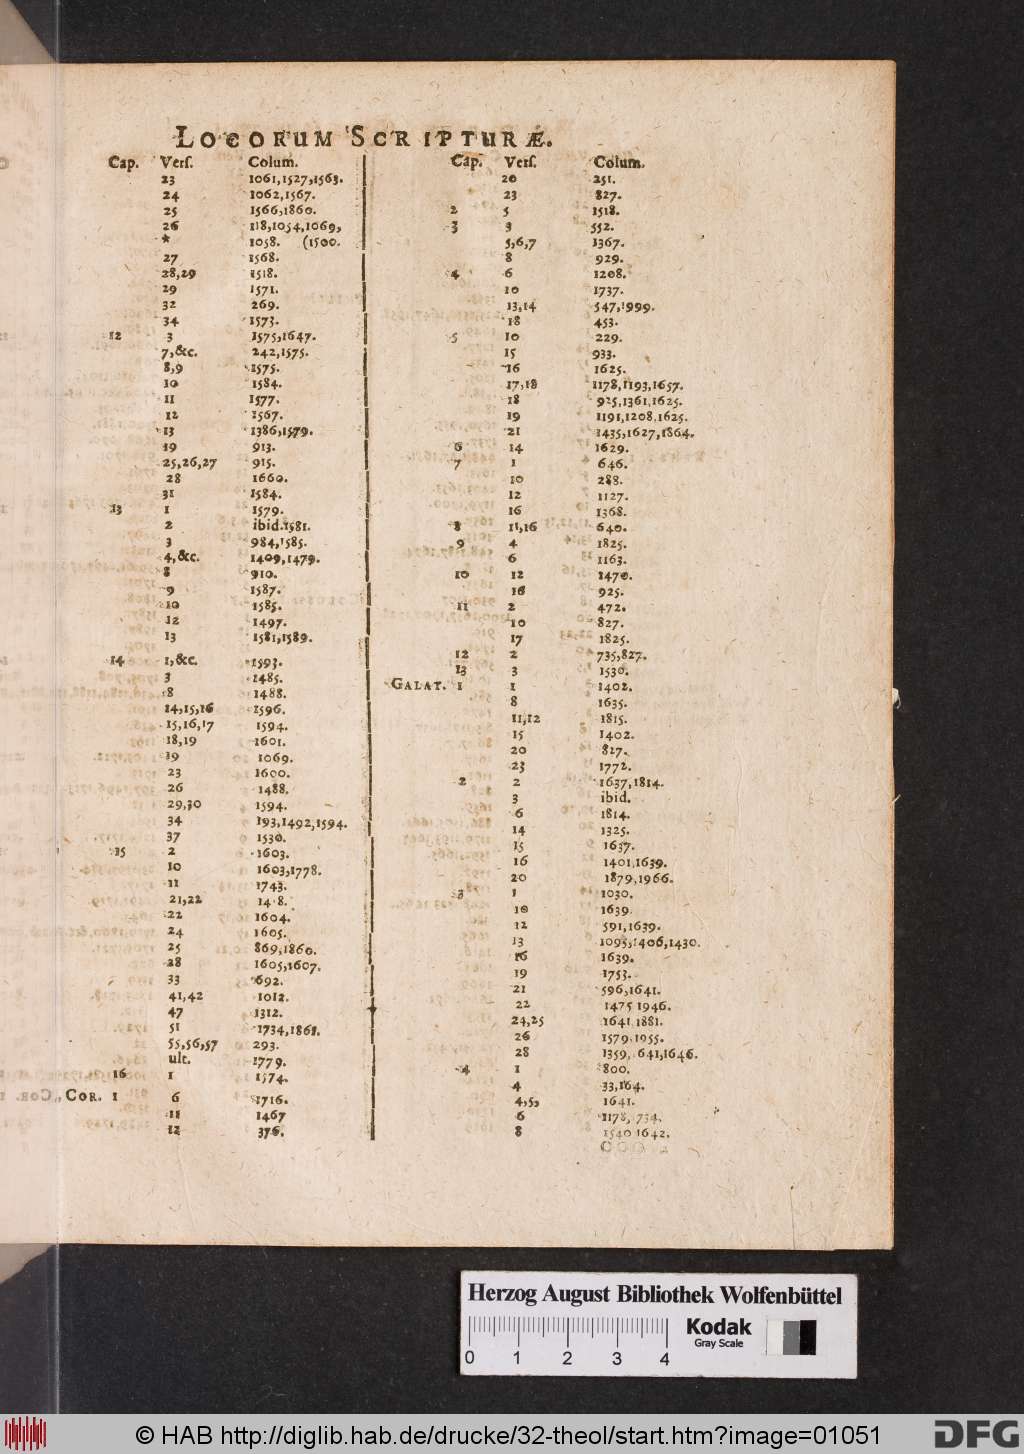 LOCORUM SCRIPTURÆ.
Cap. Vers. Colum.
23 1061,1527,1563.
24 1062,1567.
25 1566,1860.
26 118,1054,1069,
* 1058. (1500.
27 1568.
28,29 1518.
29 1571.
32 269.
34 1573.
12 3 1575,1647.
7,&c. 242,1575.
8,9 1575.
10 1584.
11 1577.
12 1567.
13 1386,1579.
19 913.
25,26,27 915.
28 1660.
31 1584.
13 1 1579.
2 ibid.1581.
3 984,1585.
4,&c. 1409,1479.
8 910.
9 1587.
10 1585.
12 1497.
13 1581,1589.
14 1,&c. 1593.
3 1485.
8 1488.
14,15,16 1596.
15,16,17 1594.
18,19 1601.
19 1069.
23 1600.
26 1488.
29,30 1594.
34 193,1492,1594.
37 1530.
15 2 1603.
10 1603,1778.
11 1743.
21,22
22 1604.
24 1605.
25 869,1860.
28 1605,1607.
33 692.
41,42 1012.
47 1312.
51 1734,1861.
55,56,57 293.
ult. 1779.
16 1 1574.
COR. 1 6 1716.
11 1467
12 376.
Cap. Vers. Colum.
20 251.
23 827.
2 5 1518.
3 3 552.
5,6,7 1367.
8 929.
4 6 1208.
10 1737.
13,14 547,1999.
18 453.
5 10 229.
15 933.
16 1625.
17,18 1178,1193,1657.
18 925,1361,1625.
19 1191,1208,1625.
21 1435,1627,1864.
6 14 1629.
7 1 646.
10 288.
12 1127.
16 1368.
8 11,16 640.
9 4 1825.
6 1163.
10 12 1470.
16 925.
11 2 472.
10 827.
17 1825.
12 2 735,827.
13 3 1530.
GALAT. 1 1 1402.
8 1635.
11,12 1815.
15 1402.
20 827.
23 1772.
2 2 1637,1814.
3 ibid.
6 1814.
14 1325.
15 1637.
16 1401,1639.
20 1879,1966.
3 1 1030.
10 1639.
12 591,1639.
13 1095,1406,1430.
16 1639.
19 1753.
21 596,1641.
22 1475 1946.
24,25 1641 1881.
26 1579,1955.
28 1359, 641,1646.
4 1 800.
4 33,164.
4,5, 1641.
6 1178, 734.
8 1540 1642.
Herzog August Bibliothek Wolfenbüttel
Kodak
Gray Scale
0 1 2 3 4
© HAB http://diglib.hab.de/drucke/32-theol/start.htm?image=01051
DFG